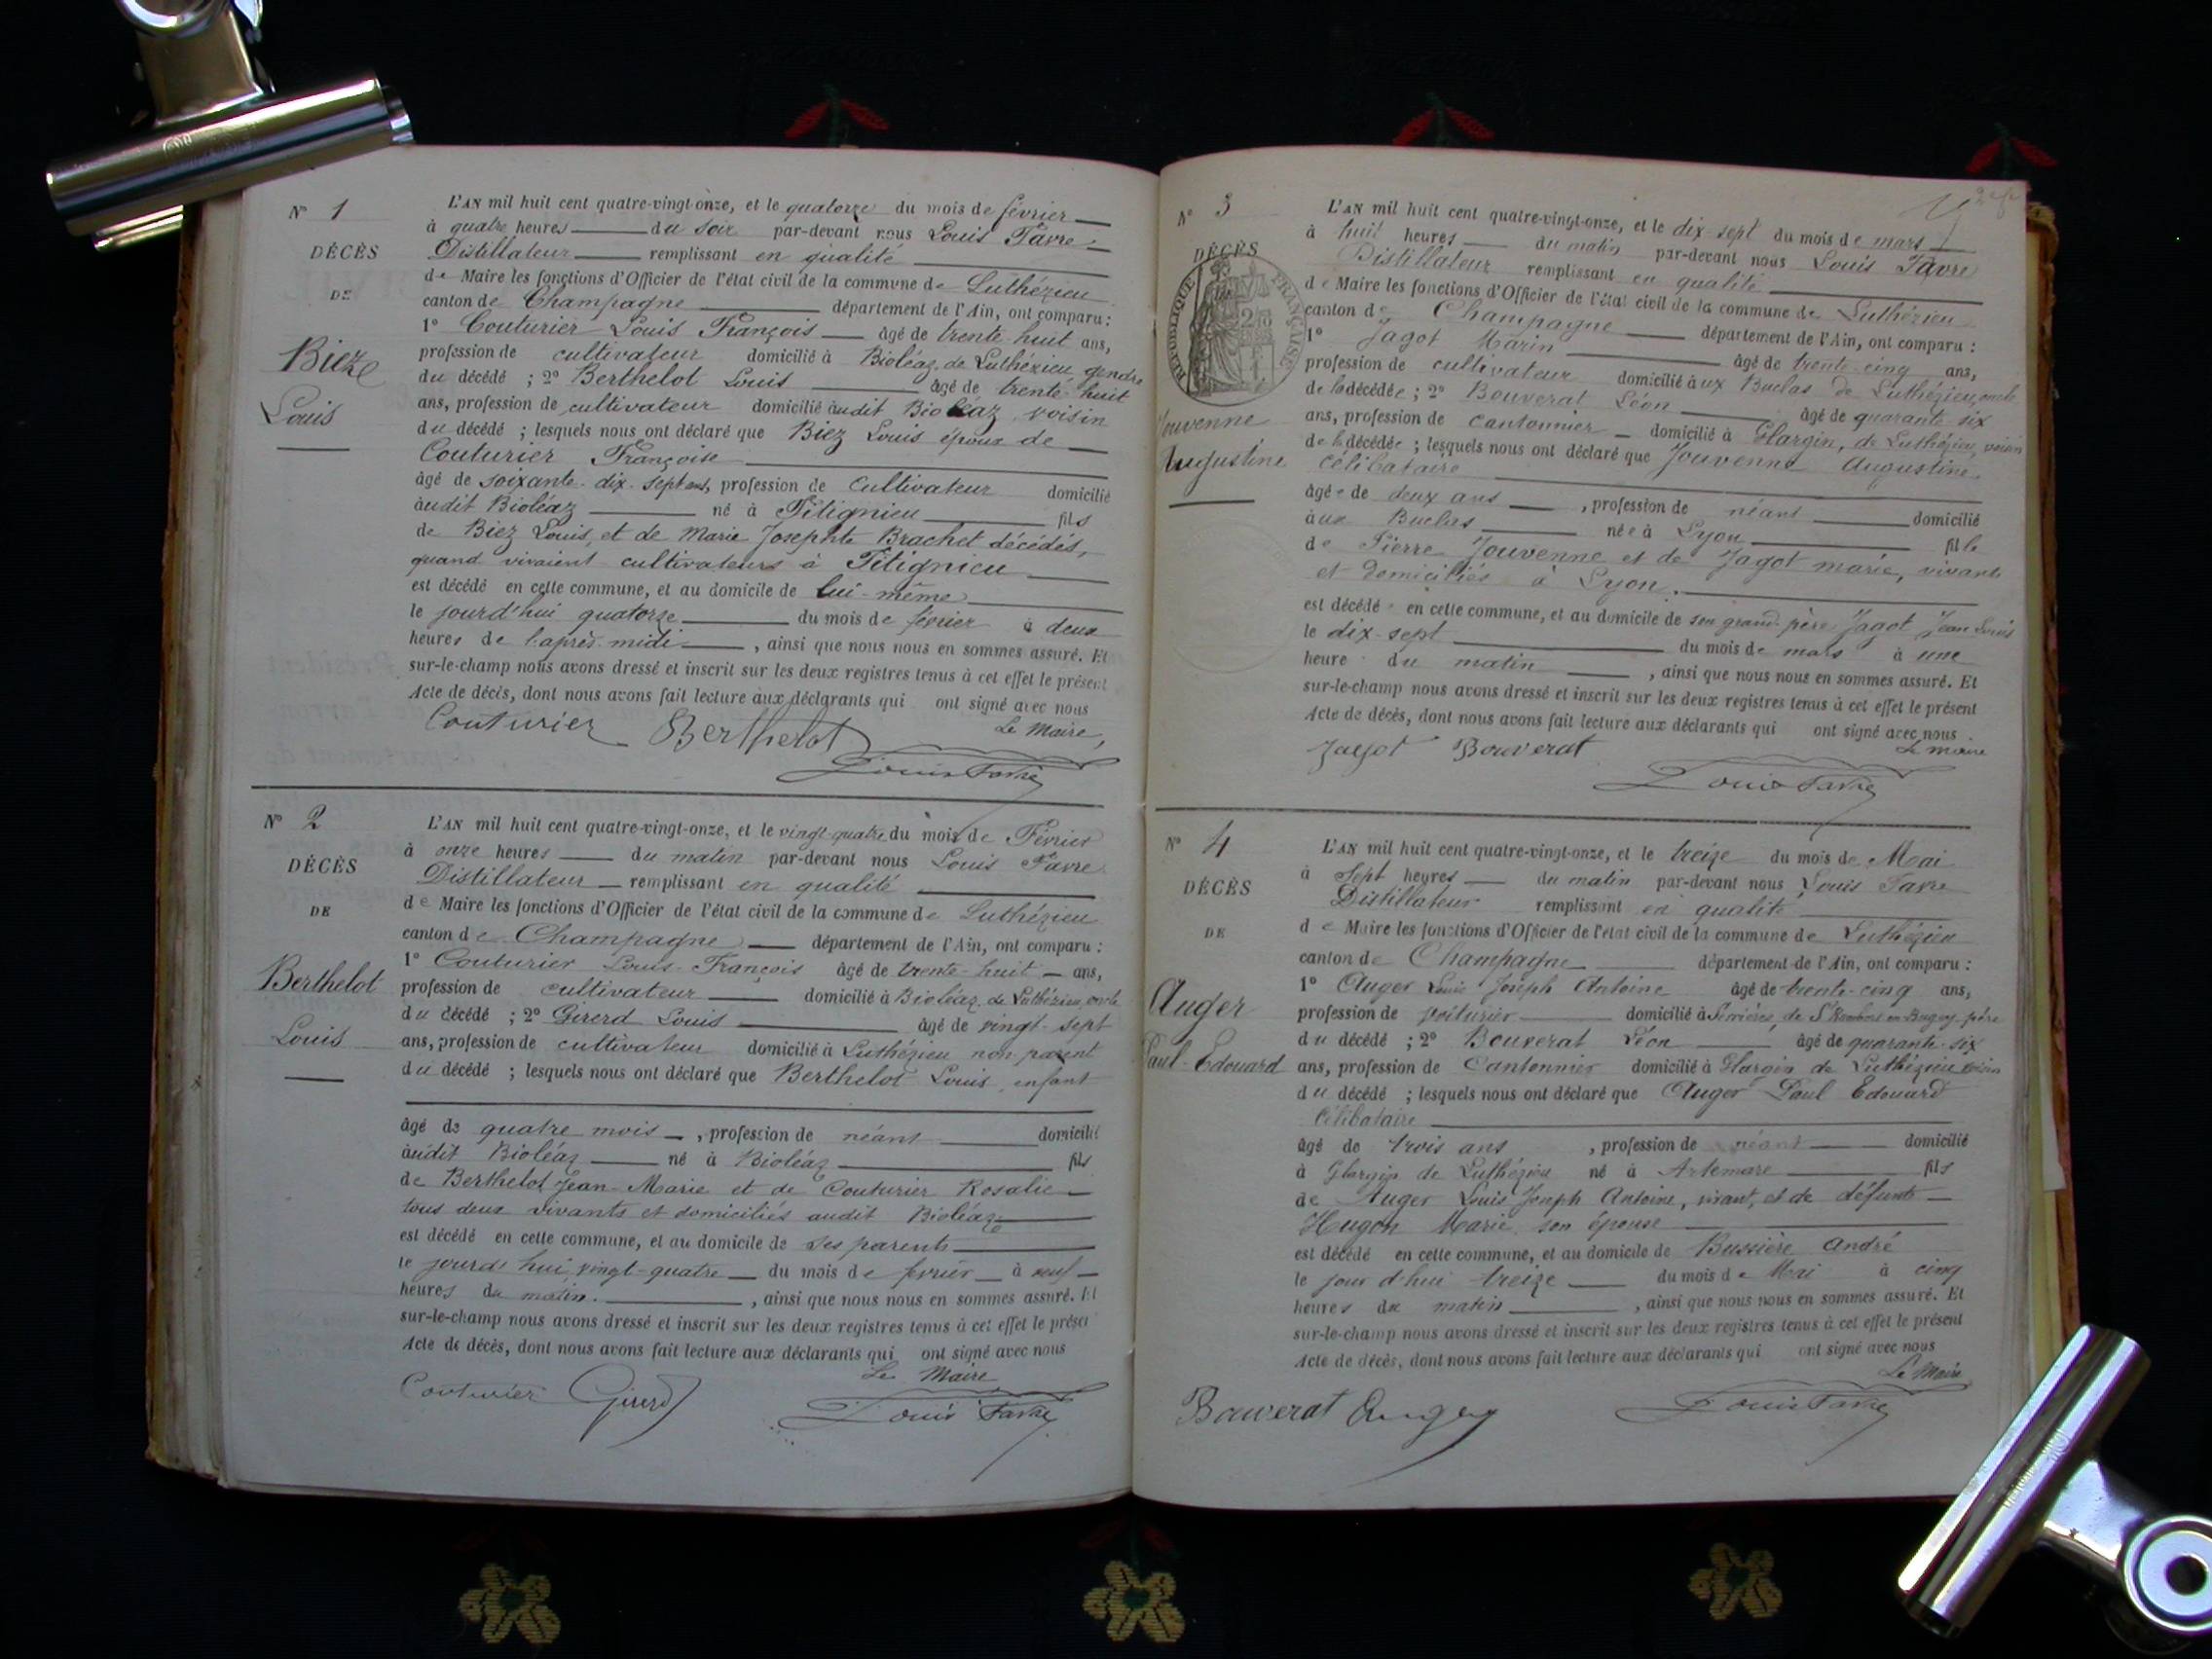 N° 1
DÉCÈS
DE
Biez
Louis
L'AN mil huit cent quatre-vingt-onze, et le quatorze du mois de février
à quatre heures du soir par-devant nous Louis Favre
Distillateur remplissant en qualité
de Maire les fonctions d'Officier de l'état civil de la commune de Luthézieu
canton de Champagne département de l'Ain, ont comparu :
1° Couturier Louis François âgé de trente-huit ans,
profession de cultivateur domicilié à Bioléaz, de Luthézieu gendre
du décédé ; 2° Berthelot Louis âgé de trente-huit
ans, profession de cultivateur domicilié audit Bioléaz, voisin
du décédé ; lesquels nous ont déclaré que Biez Louis époux de
Couturier Françoise
âgé de soixante-dix-sept ans, profession de Cultivateur domicilié
audit Bioléaz né à Pitignieu fils
de Biez Louis, et de Marie Josephte Brachet décédés,
quand vivaient cultivateurs à Pitignieu
est décédé en cette commune, et au domicile de lui-même
le jourd'hui quatorze du mois de février à deux
heures de l'après-midi, ainsi que nous nous en sommes assuré. Et
sur-le-champ nous avons dressé et inscrit sur les deux registres tenus à cet effet le présent
Acte de décès, dont nous avons fait lecture aux déclarants qui ont signé avec nous
Le Maire,
Couturier Berthelot
Louis Favre
N° 2
DÉCÈS
DE
Berthelot
Louis
L'AN mil huit cent quatre-vingt-onze, et le vingt-quatre du mois de Février
à onze heures du matin par-devant nous Louis Favre
Distillateur remplissant en qualité
de Maire les fonctions d'Officier de l'état civil de la commune de Luthézieu
canton de Champagne département de l'Ain, ont comparu :
1° Couturier Louis-François âgé de trente-huit ans,
profession de cultivateur domicilié à Bioléaz, de Luthézieu, oncle
du décédé ; 2° Girerd Louis âgé de vingt-sept
ans, profession de cultivateur domicilié à Luthézieu non-parent
du décédé ; lesquels nous ont déclaré que Berthelot Louis, enfant
âgé de quatre mois, profession de néant domicilié
audit Bioléaz né à Bioléaz fils
de Berthelot Jean-Marie et de Couturier Rosalie
tous deux vivants et domiciliés audit Bioléaz
est décédé en cette commune, et au domicile de ses parents
le jourd'hui vingt-quatre du mois de février à neuf
heures du matin, ainsi que nous nous en sommes assuré. Et
sur-le-champ nous avons dressé et inscrit sur les deux registres tenus à cet effet le présent
Acte de décès, dont nous avons fait lecture aux déclarants qui ont signé avec nous
Le Maire
Couturier Girerd
Louis Favre
N° 3
DÉCÈS
RÉPUBLIQUE FRANÇAISE
Jouvenne
Augustine
L'AN mil huit cent quatre-vingt-onze, et le dix-sept du mois de mars
à huit heures du matin, par-devant nous Louis Favre
Distillateur remplissant en qualité
de Maire les fonctions d'Officier de l'état civil de la commune de Luthézieu
canton de Champagne département de l'Ain, ont comparu :
1° Jagot Marin âgé de trente-cinq ans,
profession de cultivateur domicilié aux Buclas de Luthézieu, oncle
de la décédée ; 2° Bouverat Léon âgé de quarante-six
ans, profession de cantonnier domicilié à Glargin, de Luthézieu, voisin
de la décédée ; lesquels nous ont déclaré que Jouvenne Augustine,
Célibataire
âgée de deux ans, profession de néant domicilié
aux Buclas née à Lyon fille
de Pierre Jouvenne et de Jagot marie, vivants
et domiciliés à Lyon.
est décédé en cette commune, et au domicile de son grand-père Jagot Jean Louis
le dix-sept du mois de mars à une
heure du matin, ainsi que nous nous en sommes assuré. Et
sur-le-champ nous avons dressé et inscrit sur les deux registres tenus à cet effet le présent
Acte de décès, dont nous avons fait lecture aux déclarants qui ont signé avec nous
Le maire
Jagot Bouverat
Louis Favre
N° 4
DÉCÈS
DE
Auger
Paul-Edouard
L'AN mil huit cent quatre-vingt-onze, et le treize du mois de Mai
à Sept heures du matin par-devant nous Louis Favre
Distillateur remplissant en qualité
de Maire les fonctions d'Officier de l'état civil de la commune de Luthézieu
canton de Champagne département de l'Ain, ont comparu :
1° Auger Louis Joseph Antoine âgé de trente-cinq ans,
profession de voiturier domicilié à Serrières, de St Rambert en Bugey, père
du décédé ; 2° Bouverat Léon âgé de quarante-six
ans, profession de Cantonnier domicilié à Glargin de Luthézieu voisin
du décédé ; lesquels nous ont déclaré que Auger Paul Edouard
Célibataire
âgé de trois ans, profession de néant domicilié
à Glargin de Luthézieu né à Artemare fils
de Auger Louis Joseph Antoine, vivant, et de défunte
Hugon Marie, son épouse
est décédé en cette commune, et au domicile de Bussière André
le jour d'hui treize du mois de Mai à cinq
heures du matin, ainsi que nous nous en sommes assuré. Et
sur-le-champ nous avons dressé et inscrit sur les deux registres tenus à cet effet le présent
Acte de décès, dont nous avons fait lecture aux déclarants qui ont signé avec nous
Le Maire
Bouverat Auger
Louis Favre